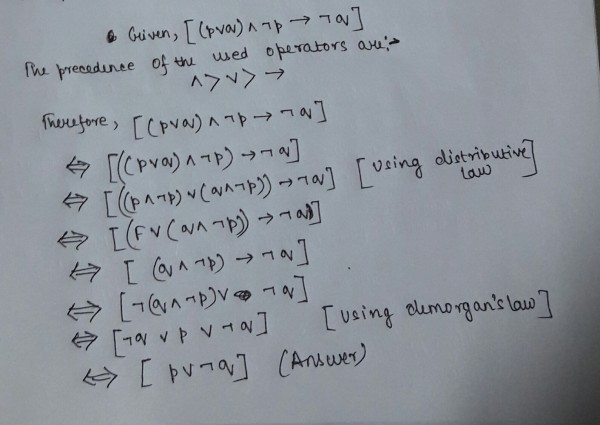 Given, [(p∨q)∧¬p → ¬q]
The precedence of the used operators are:-
∧ > ∨ > →
Therefore, [(p∨q)∧¬p → ¬q]
⇔ [((p∨q)∧¬p) → ¬q]
⇔ [((p∧¬p)∨(q∧¬p)) → ¬q] [using distributive law]
⇔ [(F∨(q∧¬p)) → ¬q)]
⇔ [(q∧¬p) → ¬q]
⇔ [¬(q∧¬p)∨ ¬q]
⇔ [¬q ∨ p ∨ ¬q] [using demorgan's law]
⇔ [p∨¬q] (Answer)